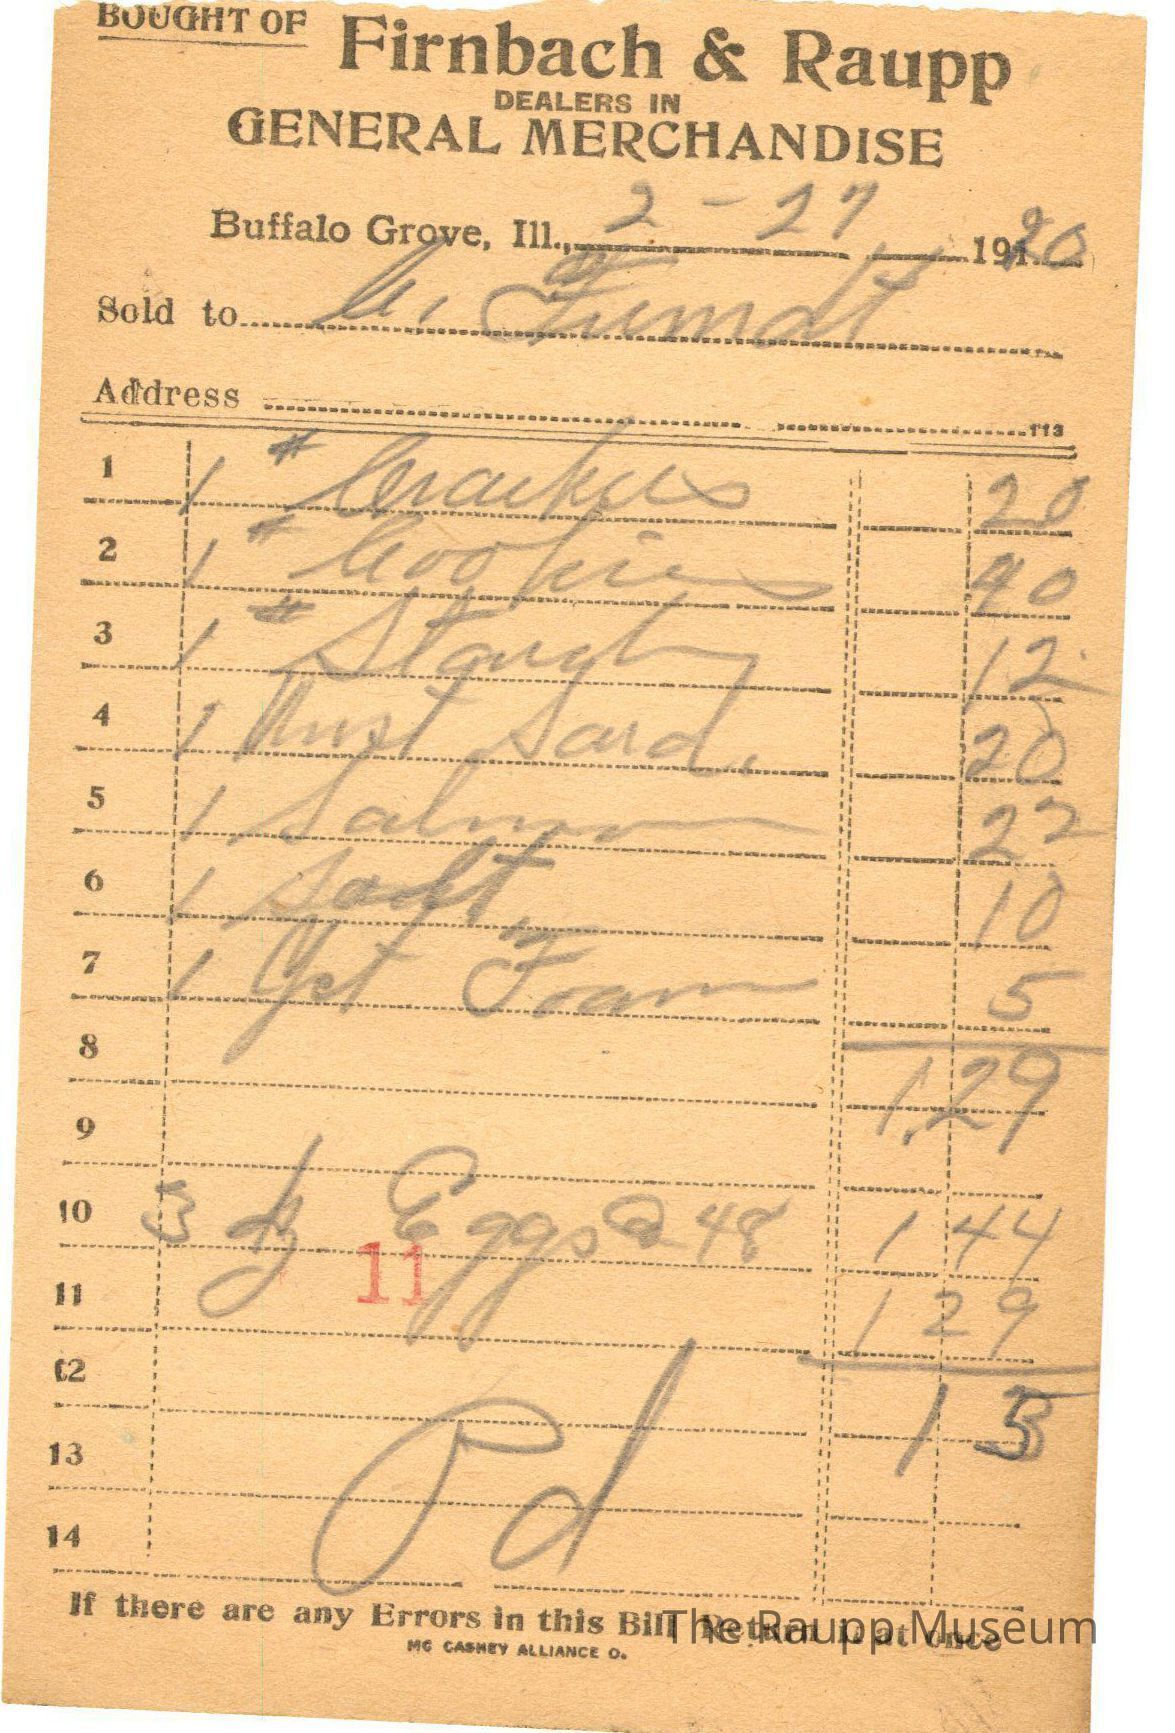 BOUGHT OF Firnbach & Raupp
DEALERS IN
GENERAL MERCHANDISE
Buffalo Grove, Ill., 2 - 27 1920
Sold to
Address
113
1 1 # Crackers 20
2 1 # Cookies 40
3 1 # Starch 12
4 1 Must Sard. 20
5 1 Salmon 22
6 1 Salt 10
7 1 Yst Foam 5
8 1.29
9
10 3 dz Eggs @ 48 1 44
11
11 1 29
12 15
13 Pd
14
If there are any Errors in this Bill Return it at once
The Raupp Museum
MC CASKEY ALLIANCE O.